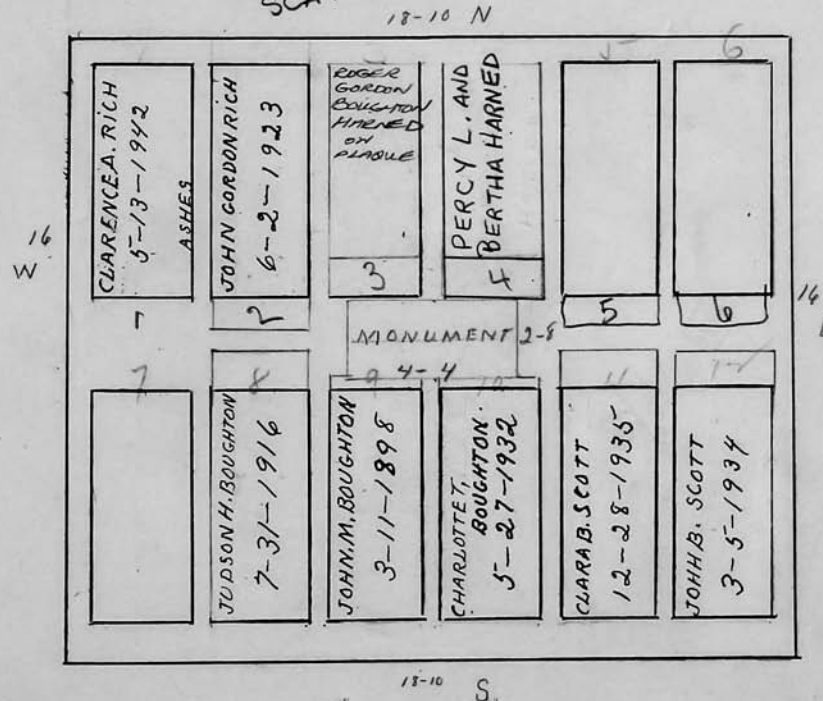 18-10 N
CLARENCE A. RICH
5-13-1942
ASHES
JOHN GORDON RICH
6-2-1923
ROGER
GORDON
BOUGHTON
HARNED
ON
PLAQUE
PERCY L. AND
BERTHA HARNED
5
6
16
W
1
2
3
4
5
6
16
MONUMENT 2-8
4-4
7
8
9
10
11
12
JUDSON H. BOUGHTON
7-31-1916
JOHN. M. BOUGHTON
3-11-1898
CHARLOTTE T.
BOUGHTON.
5-27-1932
CLARA B. SCOTT
12-28-1935
JOHH B. SCOTT
3-5-1934
18-10 S